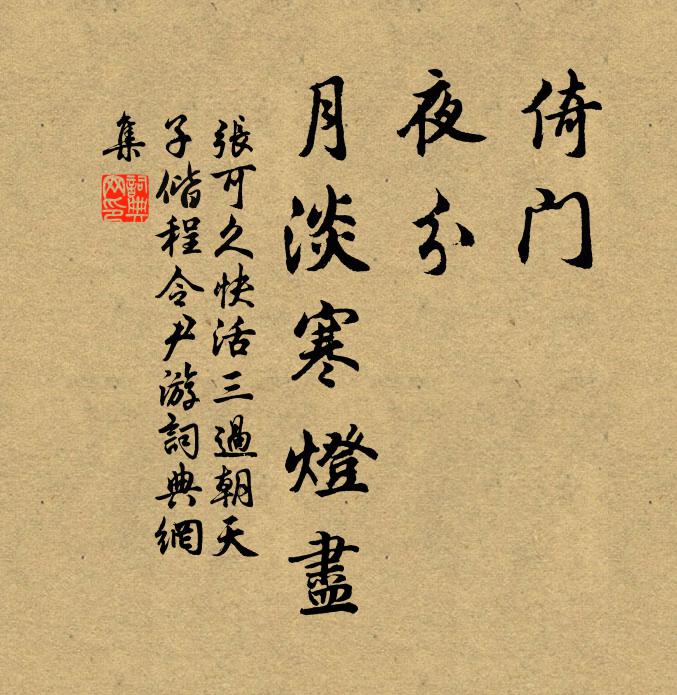 倚门
夜分
月淡寒燈盡
張可久快活三過朝天
子偕程令尹游詞典網
集
詞典
网印